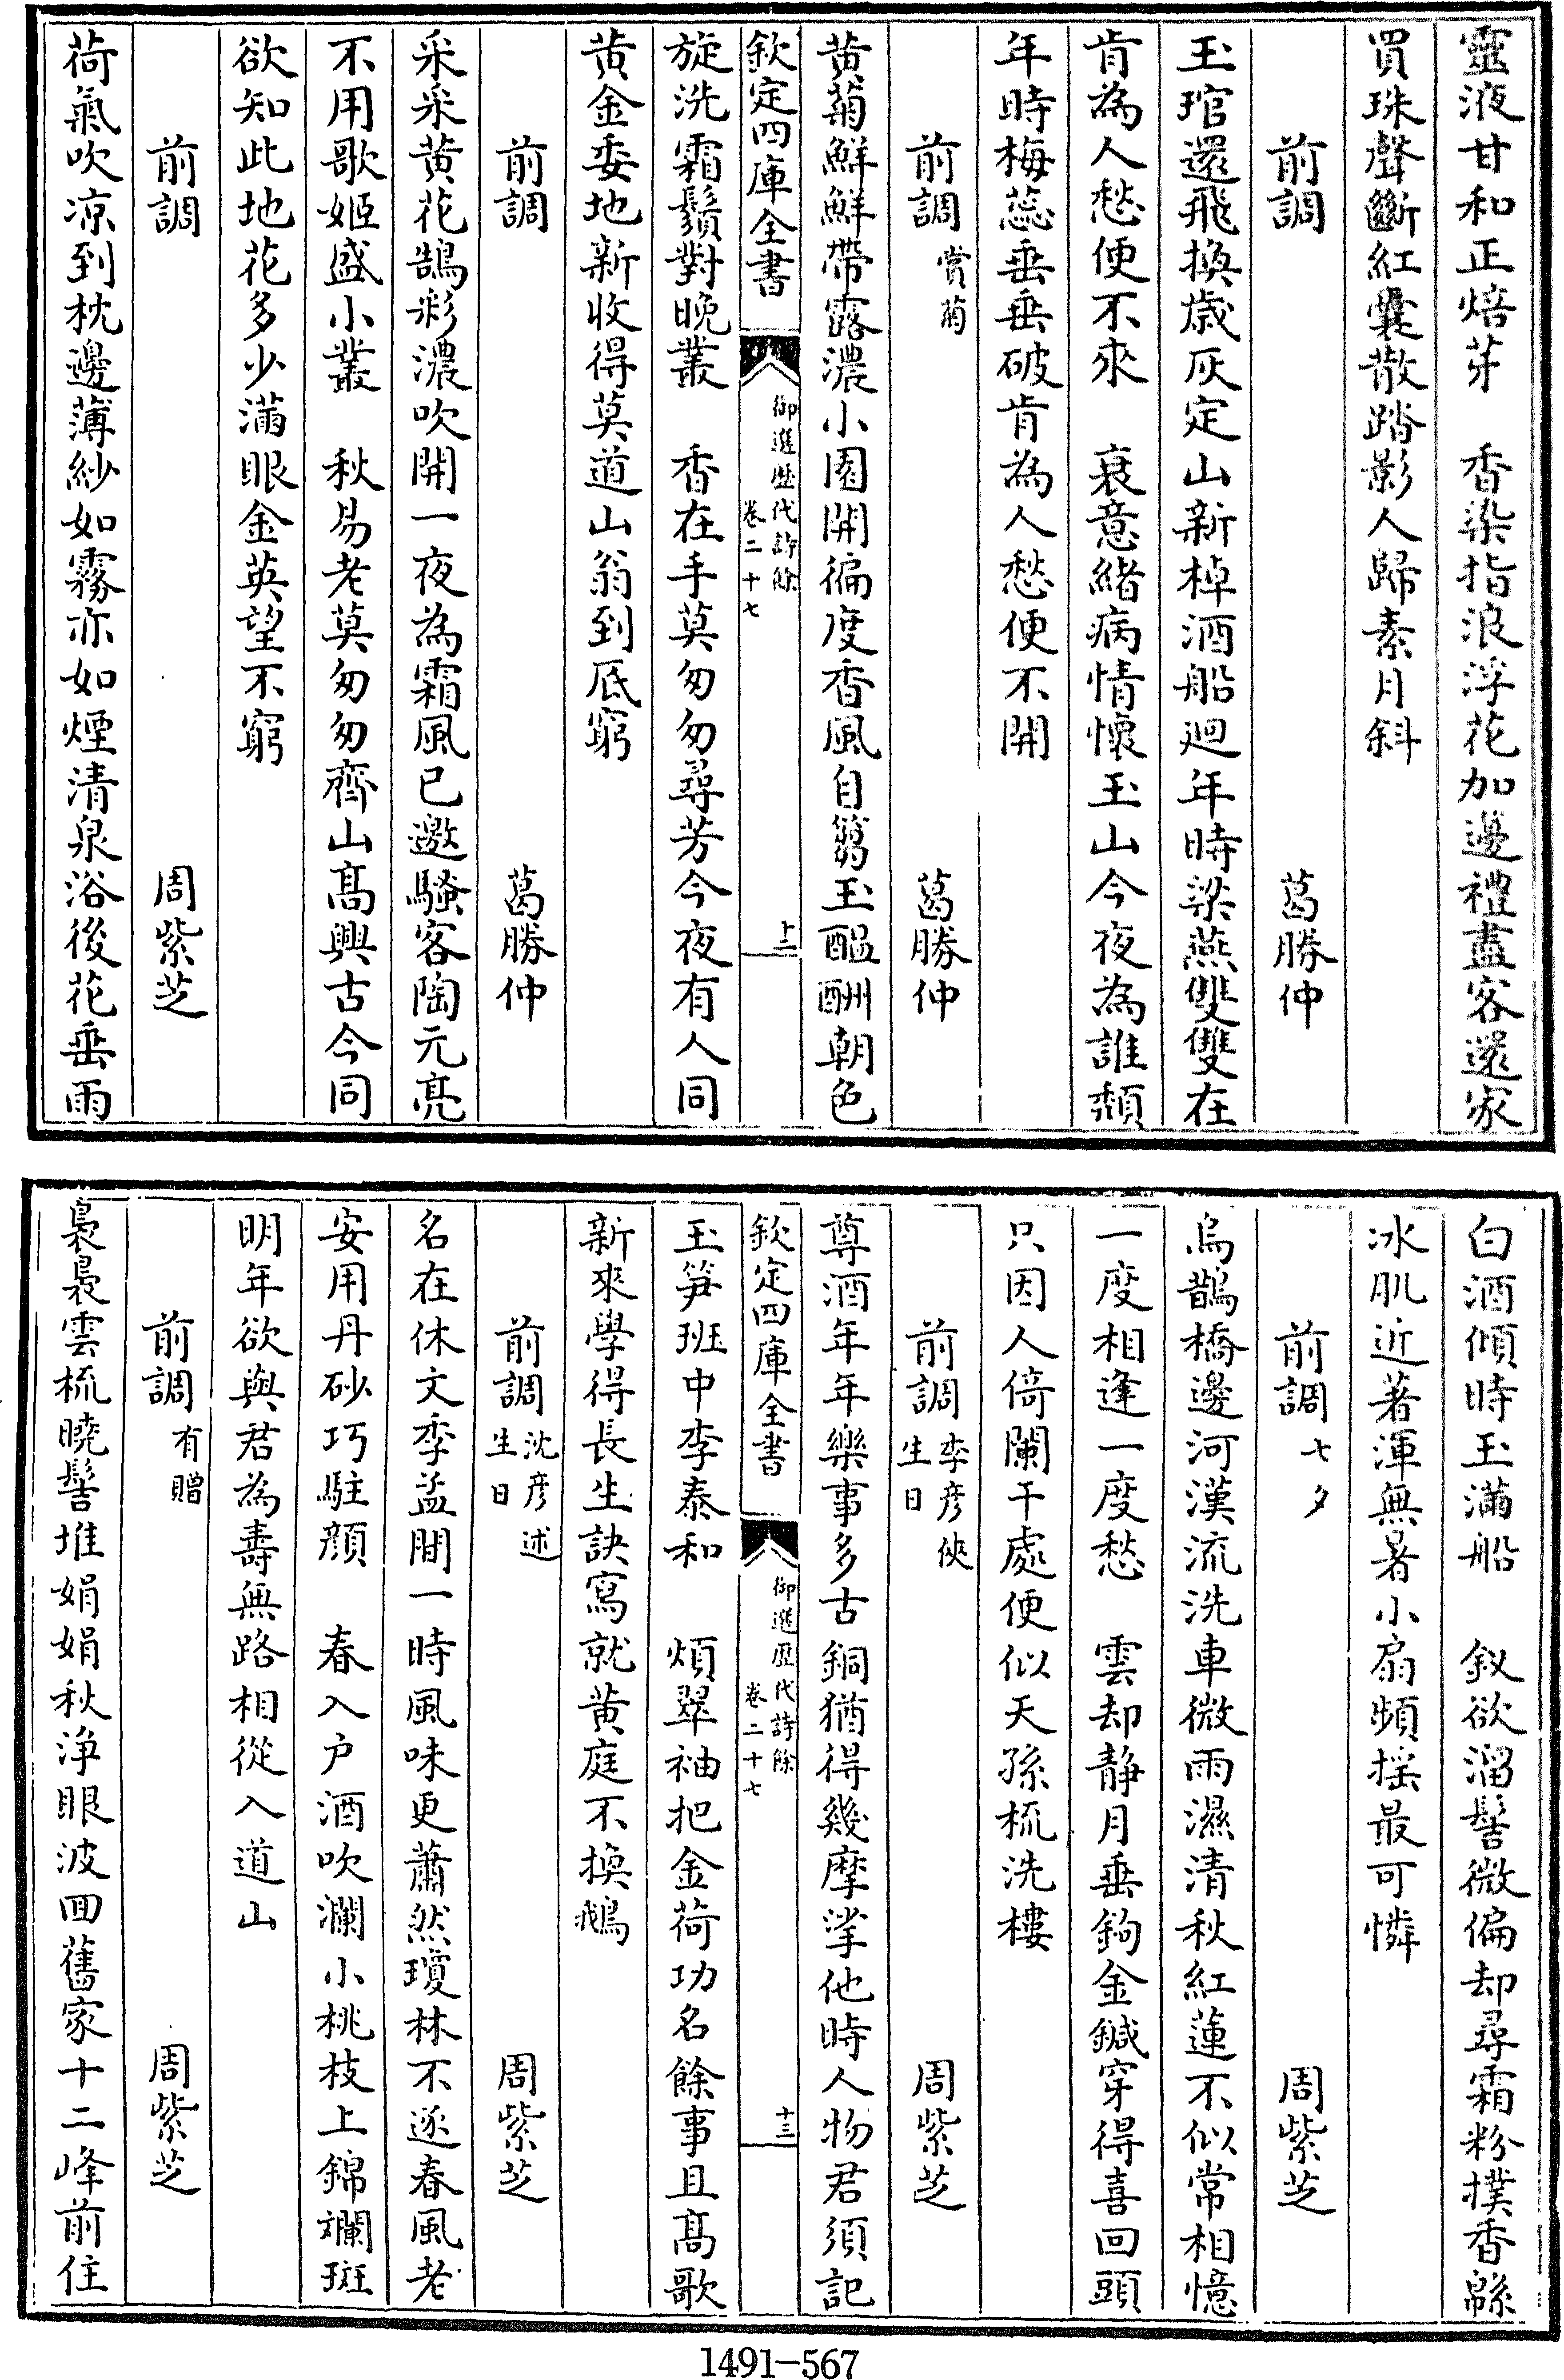 靈液甘和正焙芽　香染指浪浮花加邊禮盡客還家
買珠聲斷紅囊散踏影人歸素月斜
前調　葛勝仲
玉琯還飛換歲灰定山新棹酒船廻年時梁燕雙雙在
肯為人愁便不來　衰意緒病情懷玉山今夜為誰頽
年時梅蕊垂垂破肯為人愁便不開
前調賞菊　葛勝仲
黄菊鮮鮮帶露濃小園開徧度香風自篘玉醖酬朝色
欽定四庫全書　御選歴代詩餘　卷二十七　十二
旋洗霜鬚對晚叢　香在手莫匆匆尋芳今夜有人同
黄金委地新收得莫道山翁到底窮
前調　葛勝仲
采采黄花鵠彩濃吹開一夜為霜風已邀騷客陶元亮
不用歌姬盛小叢　秋易老莫匆匆齊山髙興古今同
欲知此地花多少滿眼金英望不窮
前調　周紫芝
荷氣吹凉到枕邊薄紗如霧亦如煙清泉浴後花垂雨
白酒傾時玉滿船　釵欲溜髻微偏却尋霜粉撲香緜
冰肌近著渾無暑小扇頻揺最可憐
前調七夕　周紫芝
烏鵲橋邊河漢流洗車微雨濕清秋紅蓮不似常相憶
一度相逢一度愁　雲却静月垂鉤金鍼穿得喜回頭
只因人倚闌干處便似天孫梳洗樓
前調李彦俠生日　周紫芝
尊酒年年樂事多古銅猶得幾摩挲他時人物君須記
欽定四庫全書　御選歴代詩餘　卷二十七　十三
玉笋班中李泰和　煩翠袖把金荷功名餘事且髙歌
新來學得長生訣寫就黄庭不換鵝
前調沈彦述生日　周紫芝
名在休文季孟間一時風味更蕭然瓊林不逐春風老
安用丹砂巧駐顔　春入户酒吹瀾小桃枝上錦斕斑
明年欲與君為壽無路相從入道山
前調有贈　周紫芝
裊裊雲梳曉髻堆娟娟秋浄眼波回舊家十二峰前住
1491-567